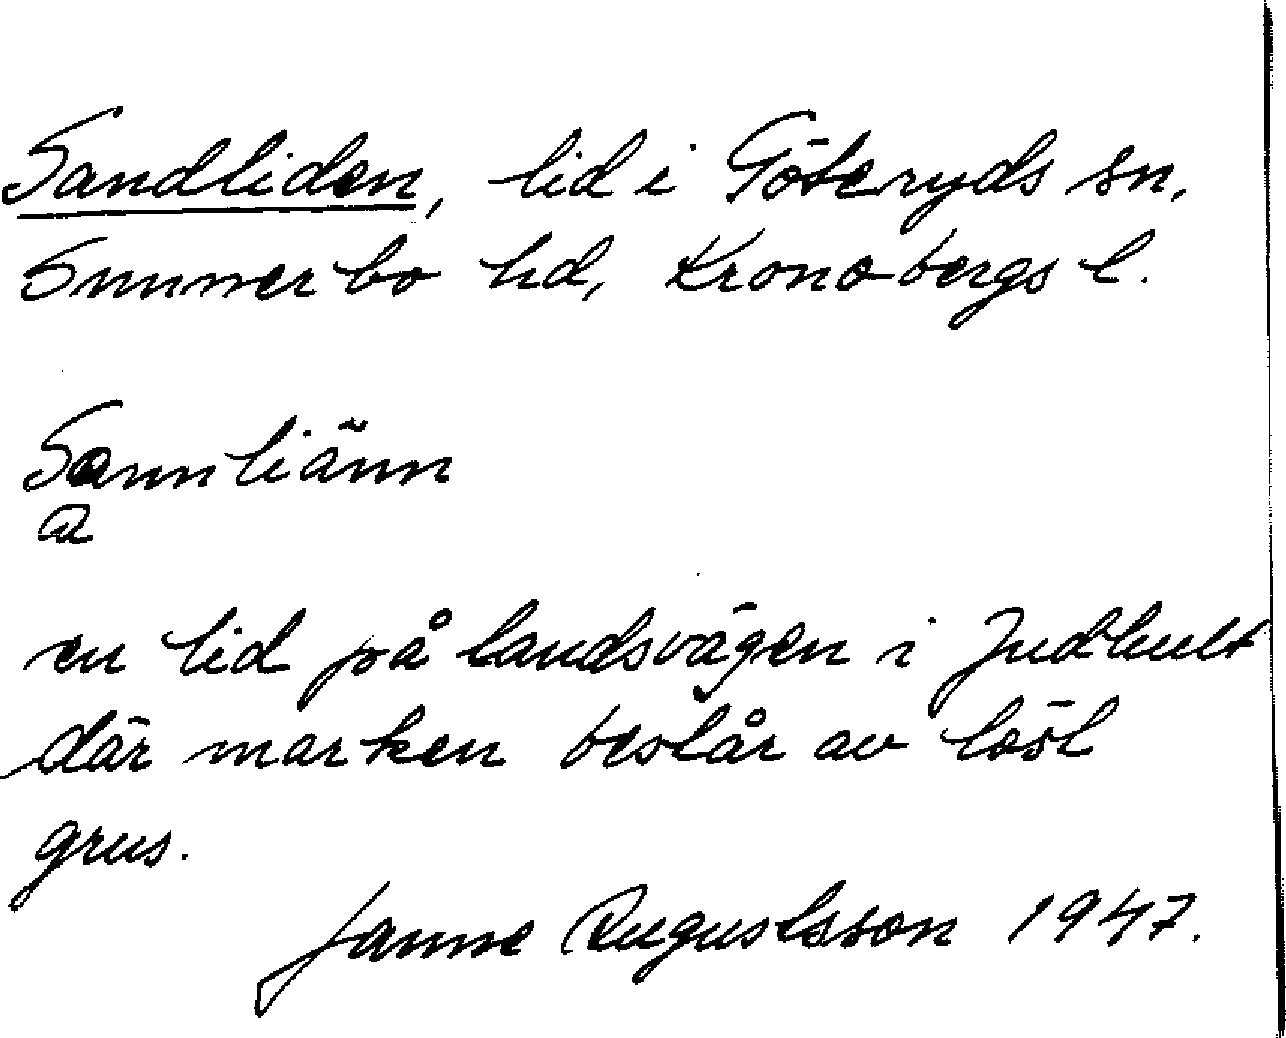 Sandliden, lid i Göteryds sn,
Sunnerbo hd, Kronobergs l.
Sannliänn
a
en lid på landsvägen i Judhult
där marken består av löst
grus.
Janne Augustsson 1947.